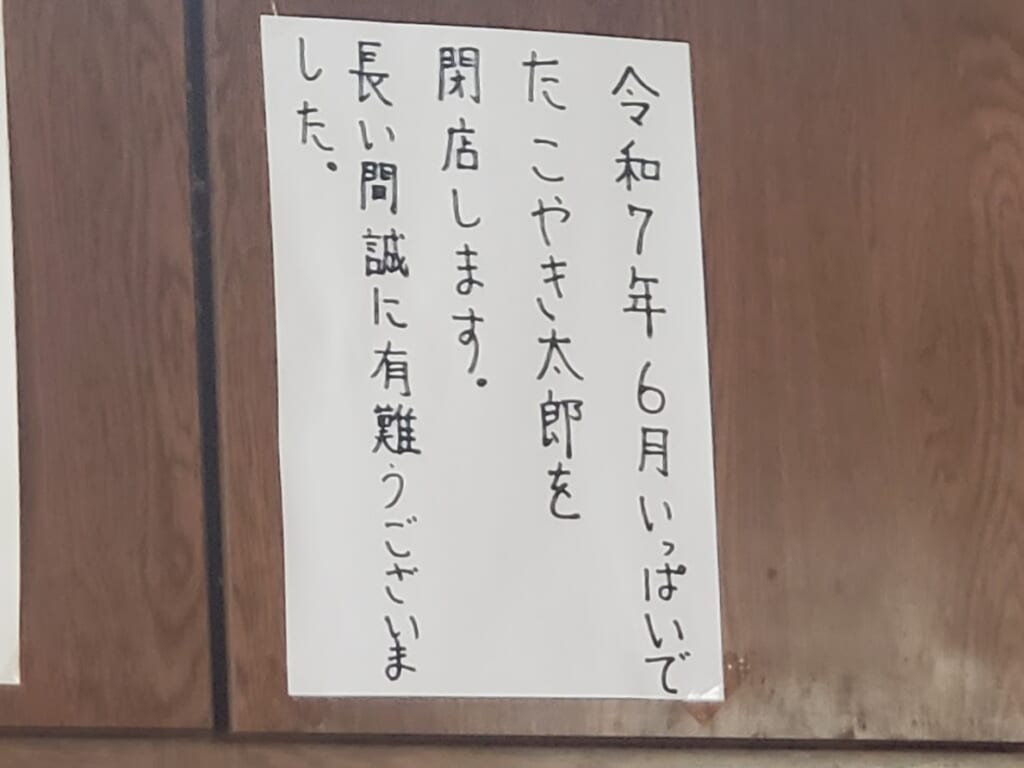 令和7年6月いっぱいで
たこやき太郎を
閉店します。
長い間誠に有難うございま
した。